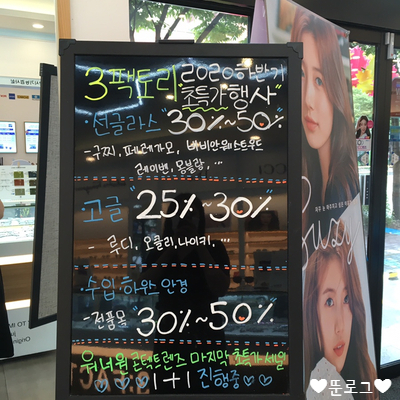 3팩토리. 2020하반기
초특가 행사"
·선글라스 "30%~50%"
- 구찌, 페레가모, 비비안웨스트우드
레이벤, 몽블랑, ...
·고글 "25%~30%"
- 루디, 오클리, 나이키, ...
·수입 하우스 안경
-전품목 "30%~50%"
워너원 콘택트렌즈 마지막 초특가 세일
1+1 진행중
Suzy
♥뚠로그♥